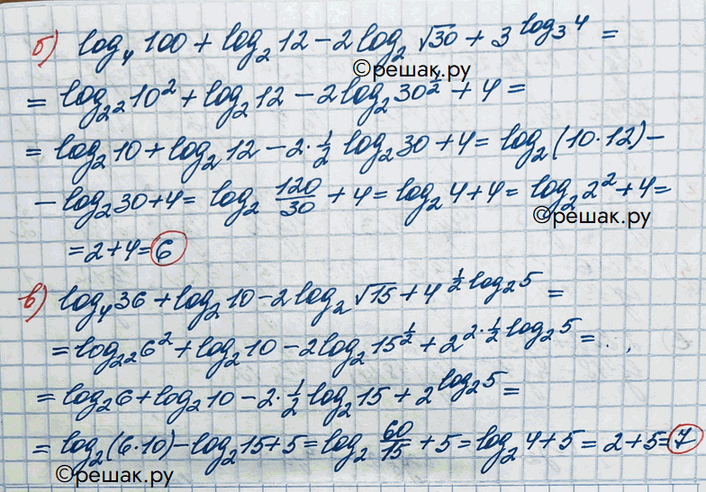 б) log₄ 100 + log₂ 12 − 2 log₂ √30 + 3^(log₃ 4) =
©решак.ру
= log_(2²) 10² + log₂ 12 − 2 log₂ 30^(1/2) + 4 =
= log₂ 10 + log₂ 12 − 2·1/2 log₂ 30 + 4 = log₂ (10·12) −
− log₂ 30 + 4 = log₂ 120/30 + 4 = log₂ 4 + 4 = log₂ 2² + 4 =
©решак.ру
= 2 + 4 = 6
в) log₄ 36 + log₂ 10 − 2 log₂ √15 + 4^(1/2 log₂ 5) =
= log_(2²) 6² + log₂ 10 − 2 log₂ 15^(1/2) + 2^(2·1/2 log₂ 5) =
= log₂ 6 + log₂ 10 − 2·1/2 log₂ 15 + 2^(log₂ 5) =
= log₂ (6·10) − log₂ 15 + 5 = log₂ 60/15 + 5 = log₂ 4 + 5 = 2 + 5 = 7
©решак.ру